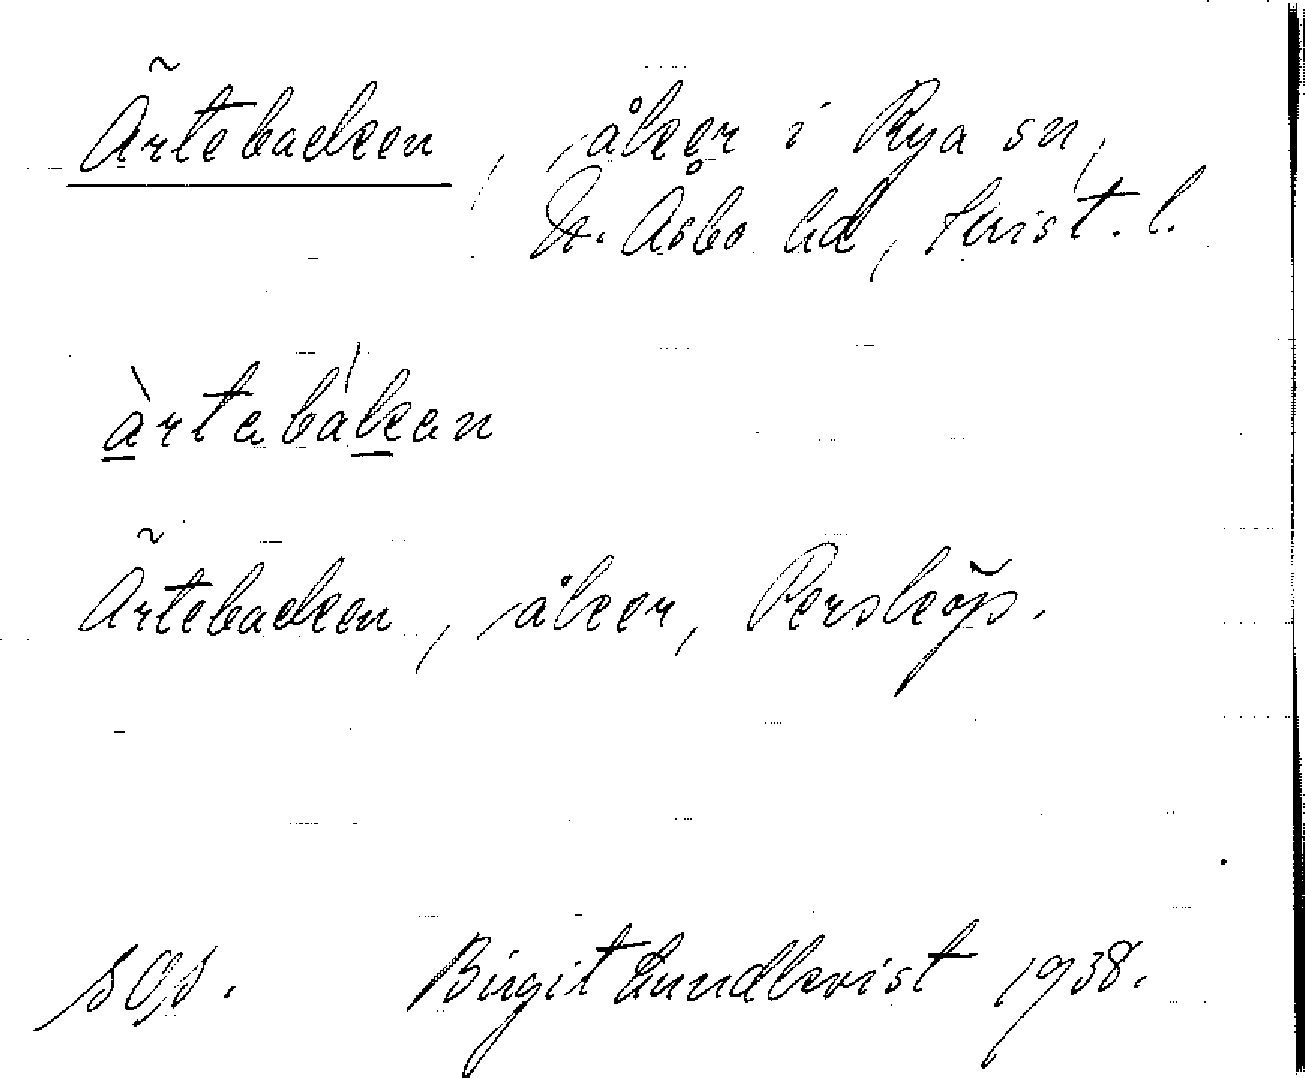 Ärtebacken, åker i Rya sn,
N. Åsbo hd, Krist. l.
àrtabákan
Ärtebacken, åker, Persköp.
Birgit Lundkvist 1938.